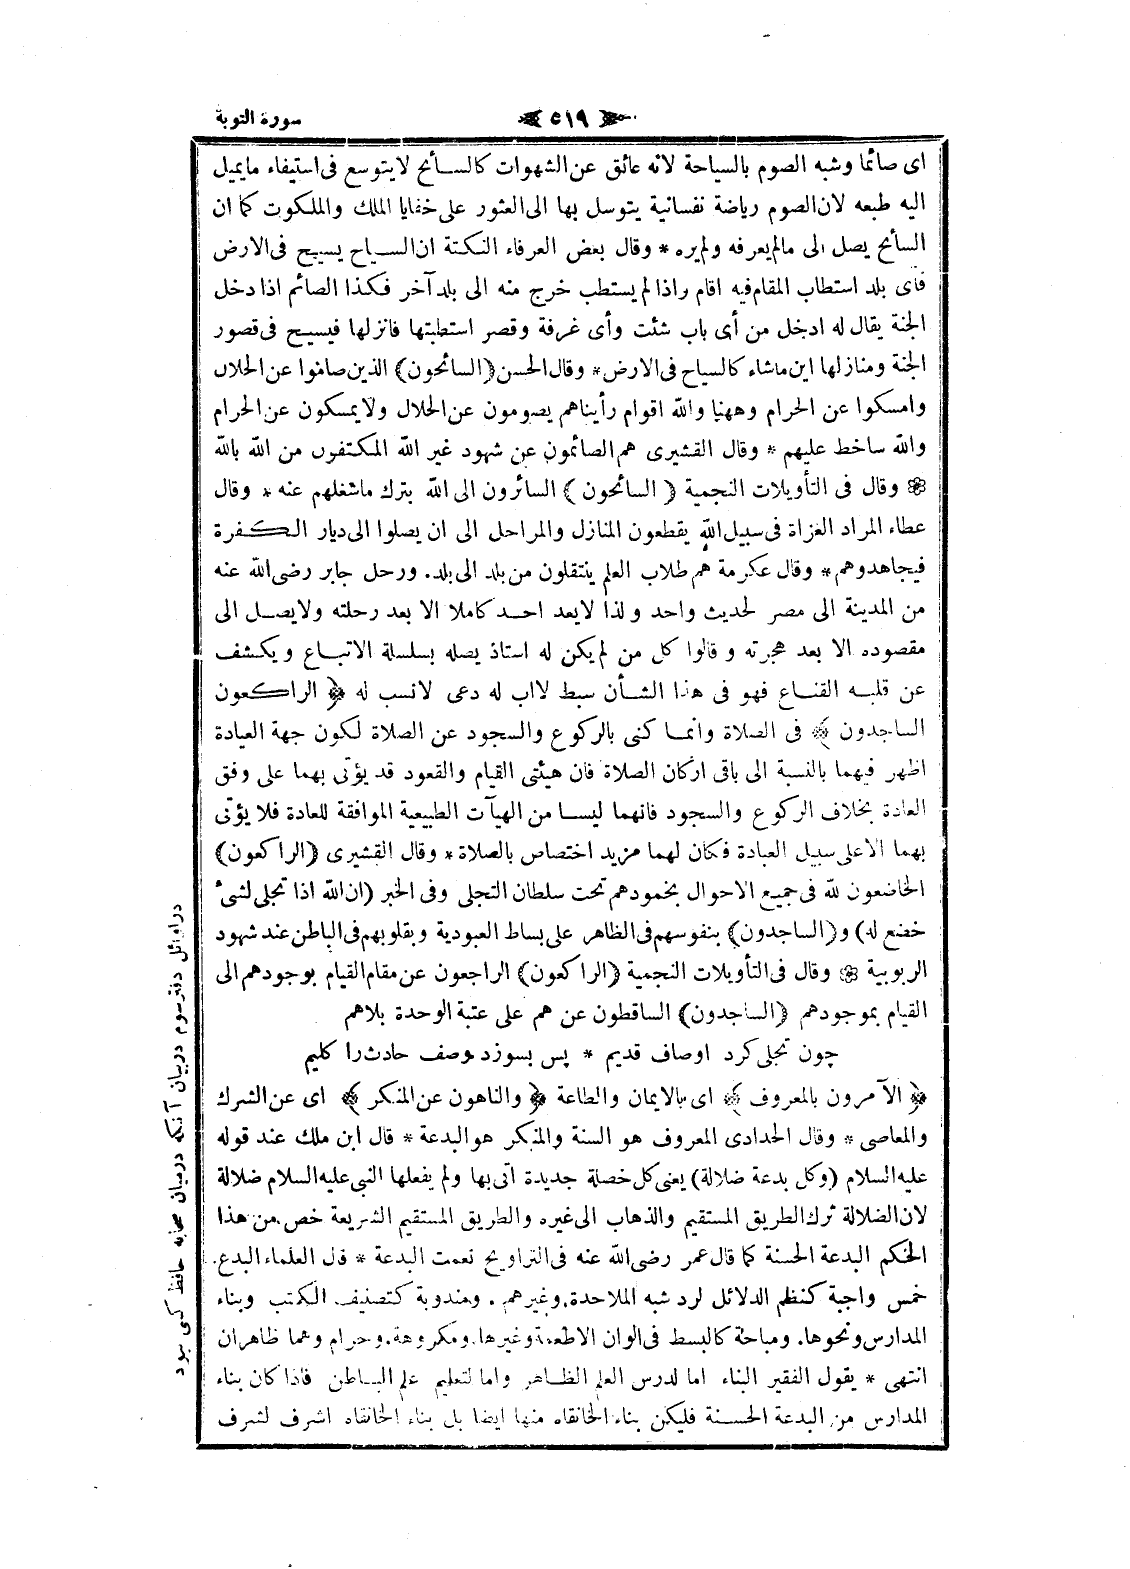 سورة التوبة
﴿ ٥١٩ ﴾
اى صائما وشبه الصوم بالسياحة لانه عائق عن الشهوات كالسـائح لايتوسع فى استيفاء مايميل
اليه طبعه لان الصوم رياضة نفسانية يتوسل بها الى العثور على خفايا الملك والملكوت كما ان
السائح يصل الى مالم يعرفه ولم يره * وقال بعض العرفاء النكتة ان السياح يسيح فى الارض
فاى بلد استطاب المقام فيه اقام راذا لم يستطب خرج منه الى بلد آخر فكذا الصائم اذا دخل
الجنة يقال له ادخل من أى باب شئت وأى غرفة وقصر استطبتها فانزلها فيسيح فى قصور
الجنة ومنازلها اين ماشاء كالسياح فى الارض * وقال الحسن (السائحون) الذين صاموا عن الحلال
وامسكوا عن الحرام وههنا والله اقوام رأيناهم يصومون عن الحلال ولا يمسكون عن الحرام
والله ساخط عليهم * وقال القشيرى هم الصائمون عن شهود غير الله المكتفون من الله بالله
❁ وقال فى التأويلات النجمية ( السائحون ) السائرون الى الله بترك ماشغلهم عنه * وقال
عطاء المراد الغزاة فى سبيل الله يقطعون المنازل والمراحل الى ان يصلوا الى ديار الكفرة
فيجاهدوهم * وقال عكرمة هم طلاب العلم ينتقلون من بلد الى بلد. ورحل جابر رضى الله عنه
من المدينة الى مصر لحديث واحد ولذا لايعد احد كاملا الا بعد رحلته ولا يصل الى
مقصوده الا بعد هجرته وقالوا كل من لم يكن له استاذ يصله بسلسلة الاتباع ويكشف
عن قلبه القناع فهو فى هذا الشأن سبط لااب له دعى لانسب له ﴿ الراكعون
الساجدون ﴾ فى الصلاة وانما كنى بالركوع والسجود عن الصلاة لكون جهة العبادة
اظهر فيهما بالنسبة الى باقى اركان الصلاة فان هيئتى القيام والقعود قد يؤتى بهما على وفق
العادة بخلاف الركوع والسجود فانهما ليسا من الهيآت الطبيعية الموافقة للعادة فلا يؤتى
بهما الا على سبيل العبادة فكان لهما مزيد اختصاص بالصلاة * وقال القشيرى (الراكعون)
الخاضعون لله فى جميع الاحوال بخمودهم تحت سلطان التجلى وفى الخبر (ان الله اذا تجلى لشئ
خضع له) و(الساجدون) بنفوسهم فى الظاهر على بساط العبودية وبقلوبهم فى الباطن عند شهود
الربوبية ❁ وقال فى التأويلات النجمية (الراكعون) الراجعون عن مقام القيام بوجودهم الى
القيام بموجودهم (الساجدون) الساقطون عن هم على عتبة الوحدة بلاهم
چون تجلى كرد اوصاف قديم * پس بسوزد وصف حادث را كليم
﴿ الآمرون بالمعروف ﴾ اى بالايمان والطاعة ﴿ والناهون عن المنكر ﴾ اى عن الشرك
والمعاصى * وقال الحدادى المعروف هو السنة والمنكر هو البدعة * قال ابن ملك عند قوله
عليه السلام (وكل بدعة ضلالة) يعنى كل خصلة جديدة اتى بها ولم يفعلها النبى عليه السلام ضلالة
لان الضلالة ترك الطريق المستقيم والذهاب الى غيره والطريق المستقيم الشريعة خص من هذا
الحكم البدعة الحسنة كما قال عمر رضى الله عنه فى التراويح نعمت البدعة * قال العلماء البدع
خمس واجبة كنظم الدلائل لرد شبه الملاحدة وغيرهم . ومندوبة كتصنيف الكتب وبناء
المدارس ونحوها. ومباحة كالبسط فى الوان الاطعمة وغيرها. ومكروهة. وحرام وهما ظاهران
انتهى * يقول الفقير البناء اما لدرس العلم الظاهر واما لتعليم علم الباطن فاذا كان بناء
المدارس من البدعة الحسنة فليكن بناء الخانقاه منها ايضا بل بناء الخانقاه اشرف لشرف
در اوائل دفتر سوم در بيان آنكه درميان صحابه حافظ كسى نبود